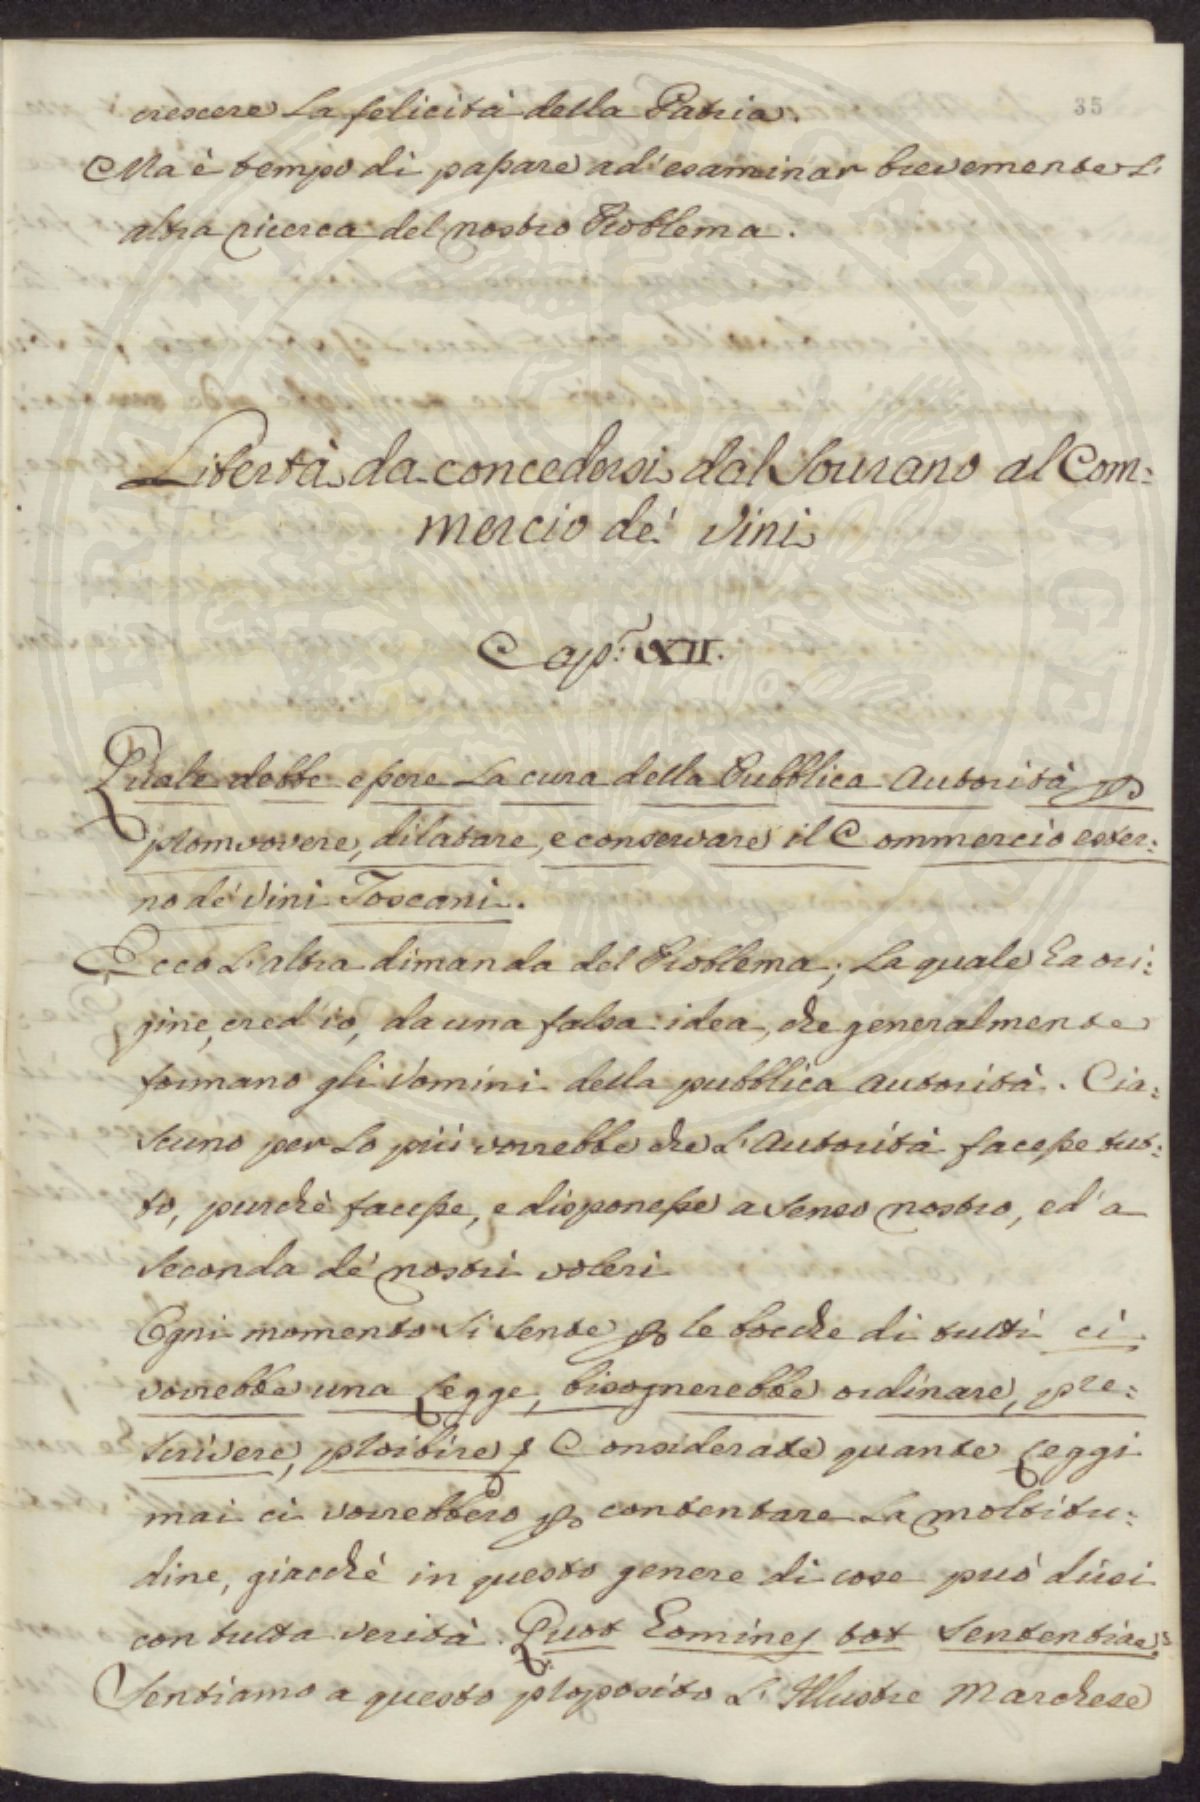 35
crescere la felicità della Patria.
Ma è tempo di passare ad'esaminar brevemente l'
altra ricerca del nostro Problema.
Libertà da concedersi dal Sovrano al Com:
mercio de' Vini
Cap: XII.
Quale debbe essere la cura della Pubblica Autorità p
promuovere, dilatare, e conservare il Commercio ester:
no de' Vini Toscani.
Ecco l'altra dimanda del Problema; la quale ha ori:
gine, cred'io, da una falsa idea, che generalmente
formano gli Uomini della pubblica Autorità. Cia:
scuno per lo più vorrebbe che l'Autorità facesse tut:
to, purchè facesse, e disponesse a senso nostro, ed' a
seconda de' nostri voleri
Ogni momento si sente p le bocche di tutti ci
vorrebbe una Legge, bisognerebbe ordinare, pre:
scrivere, proibire Considerate quante Leggi
mai ci vorrebbero p contentare la moltitu:
dine, giacchè in questo genere di cose può dirsi
con tutta verità. Quot homines tot sententiae
Sentiamo a questo proposito l'Illustre Marchese